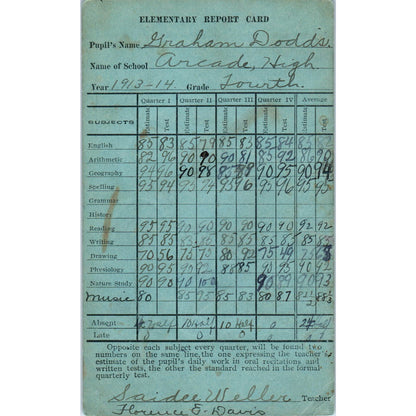 ELEMENTARY REPORT CARD
Pupil's Name Graham Dodds.
Name of School Arcade, High
Year 1913-14. Grade Fourth.
Quarter I Quarter II Quarter III Quarter IV Average
SUBJECTS Estimate Test Estimate Test Estimate Test Estimate Test Estimate Test
English 85 83 85 79 85 83 85 84 85
Arithmetic 82 96 90 90 90 81 85 92 86 90
Geography 94 96 90 98 90 95 90 94
Spelling 95 94 95 96 95 96 95 95
Grammar
History
Reading 95 95 90 90 90 90 90 90 92 92
Writing 85 85 85 85 85 85 85 85 85
Drawing 70 56 75 75 80 92 75 49 75
Physiology 90 95 90 92 88 85 90 95 90 92
Nature Study 90 90 10 100 90 89 90 93
Music 80 85 75 85 83 80 87 82½
Absent 10 half 10 half 0
Late 0 0 0 0 0
Opposite each subject every quarter, will be found two
numbers on the same line, the one expressing the teacher's
estimate of the pupil's daily work in oral recitations and
written tests, the other the standard reached in the formal
quarterly test.
Saidee Weller Teacher
Florence E. Davis